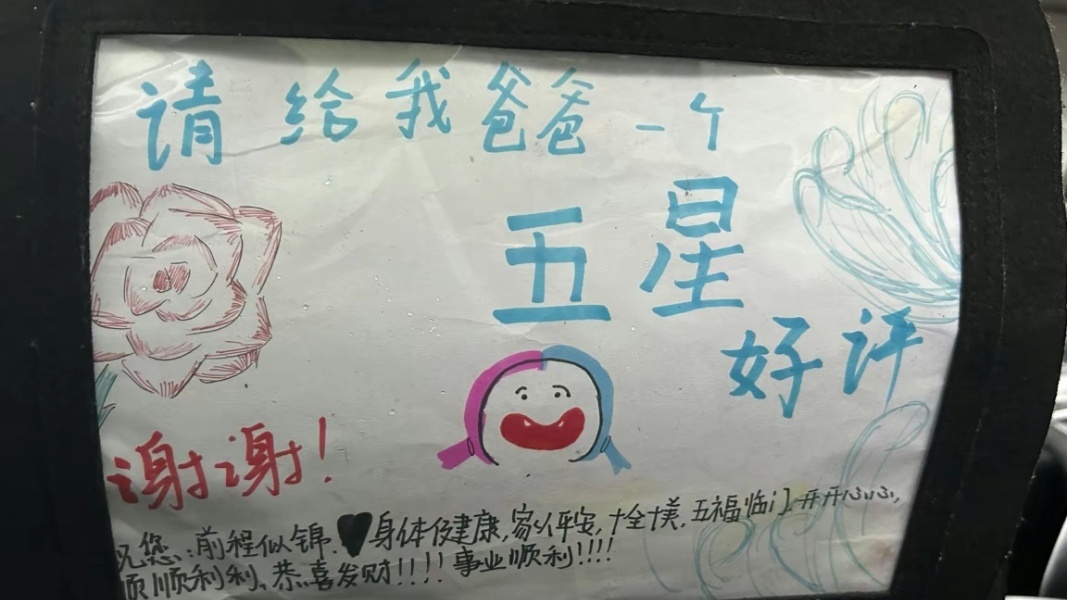 请给我爸爸一个
五星
好评
谢谢!
祝您:前程似锦.身体健康,家人平安,十全十美,五福临门.开开心心,
顺顺利利、恭喜发财!!!!事业顺利!!!!